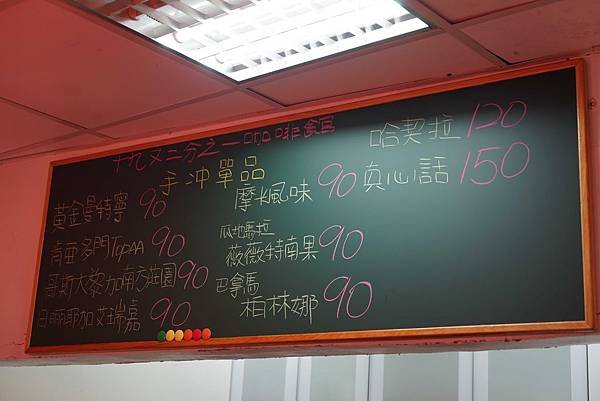 十九又二分之一咖啡館
手冲單品
黃金曼特寧 90
肯亞多門TOPAA 90
哥斯大黎加南方莊園 90
日曬耶加艾瑞嘉 90
摩卡風味 90
瓜地馬拉
薇薇特南果 90
巴拿馬
柏林娜 90
哈契拉 120
真心話 150